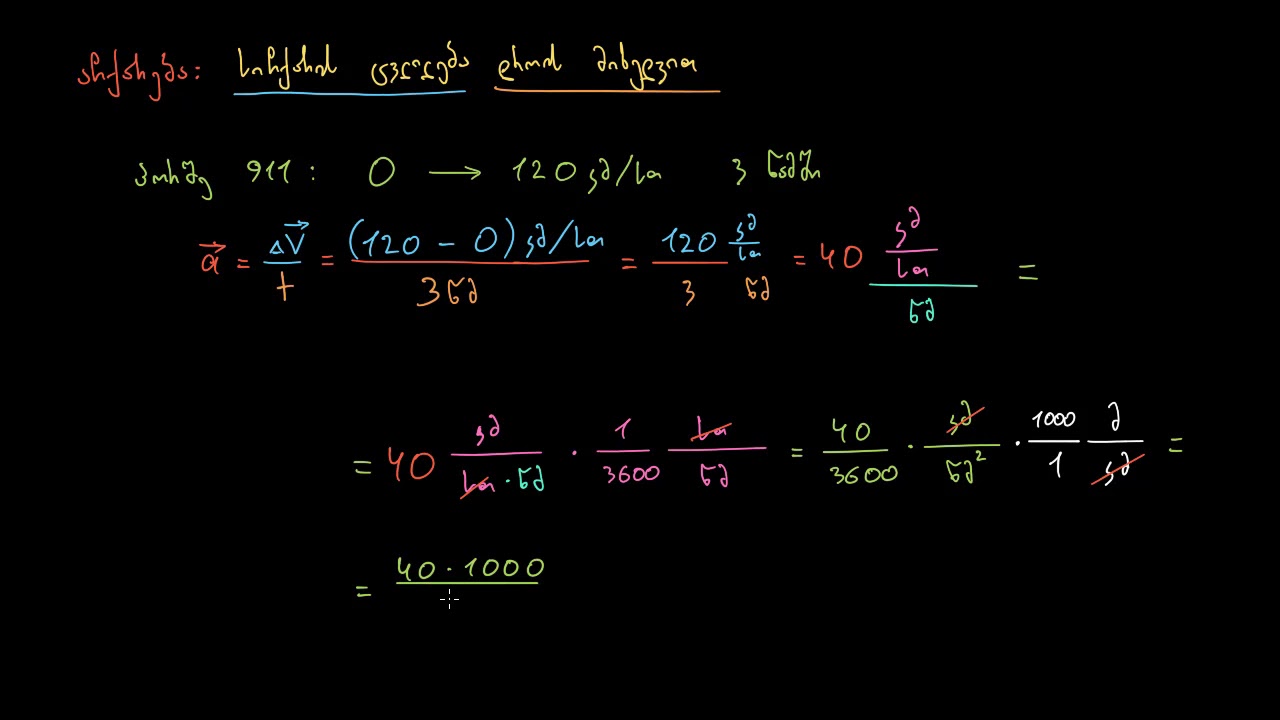 აჩქარება: სიჩქარის ცვლილება დროის მიხედვით
პორშე 911 : 0 → 120 კმ/სთ 3 წამში
a⃗ = ΔV⃗ / t = (120 - 0) კმ/სთ / 3 წმ = 120 კმ/სთ / 3 წმ = 40 კმ/სთ / წმ =
= 40 კმ / სთ · წმ · 1 / 3600 სთ / წმ = 40 / 3600 · კმ / წმ² · 1000 / 1 მ / კმ =
= 40 · 1000